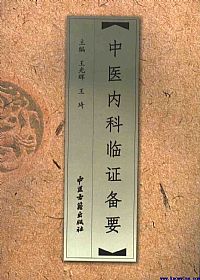 【中医内科临证备要】
主编 王光辉 王 琦
中医古籍出版社